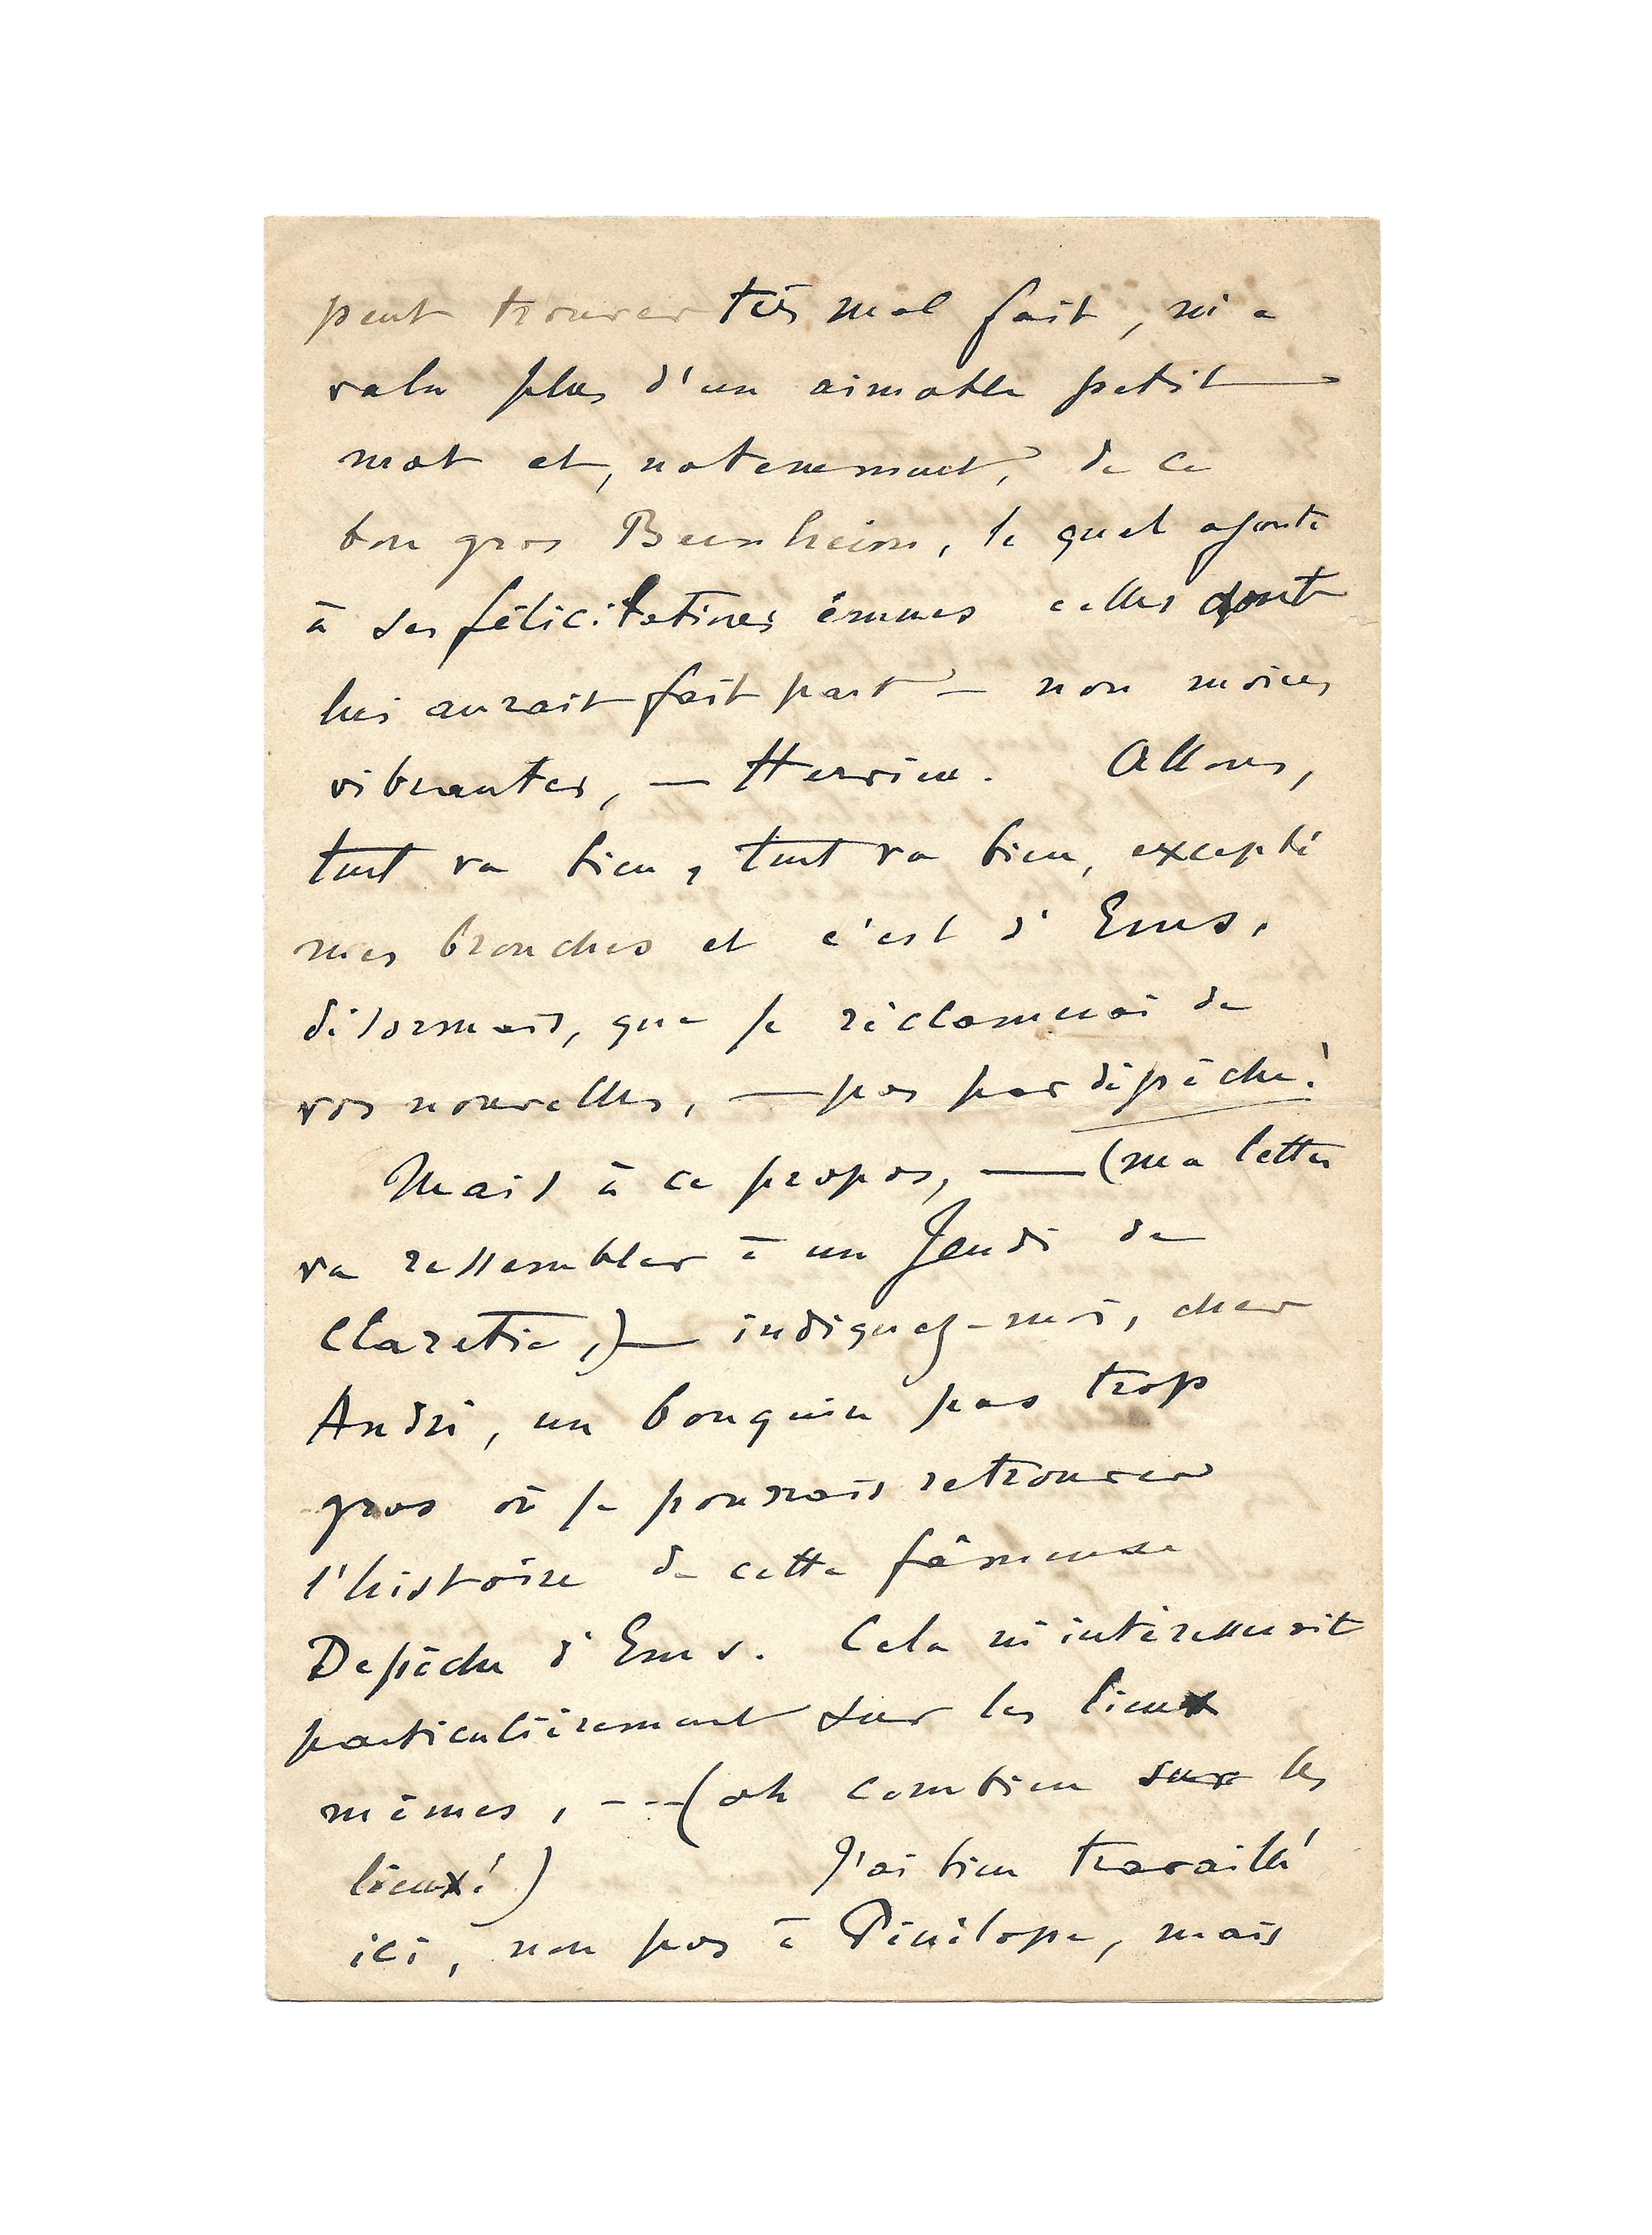 peut trouver très mal fait, m'a
valu plus d'un aimable petit
mot et, notamment, de ce
bon gros Bernheim, lequel ajoute
à ses félicitations émues celles dont
lui aurait fait part — non moins
vibrantes, — Hervieu. Allons,
tout va bien, tout va bien, excepté
mes bronches et c'est d'Ems,
désormais, que je réclamerai de
vos nouvelles, — pas par dépêche!
Mais à ce propos, — (ma lettre
va ressembler à un Jeudi de
Claretie,) — indiquez-moi, cher
André, un bouquin pas trop
gros où je pourrais retrouver
l'histoire de cette fâmeuse
Depêche d'Ems. Cela m'intéresserait
particulièrement sur les lieux
mêmes, --- (oh combien sur les
lieux!) J'ai bien travaillé
ici, non pas à Pénélope, mais